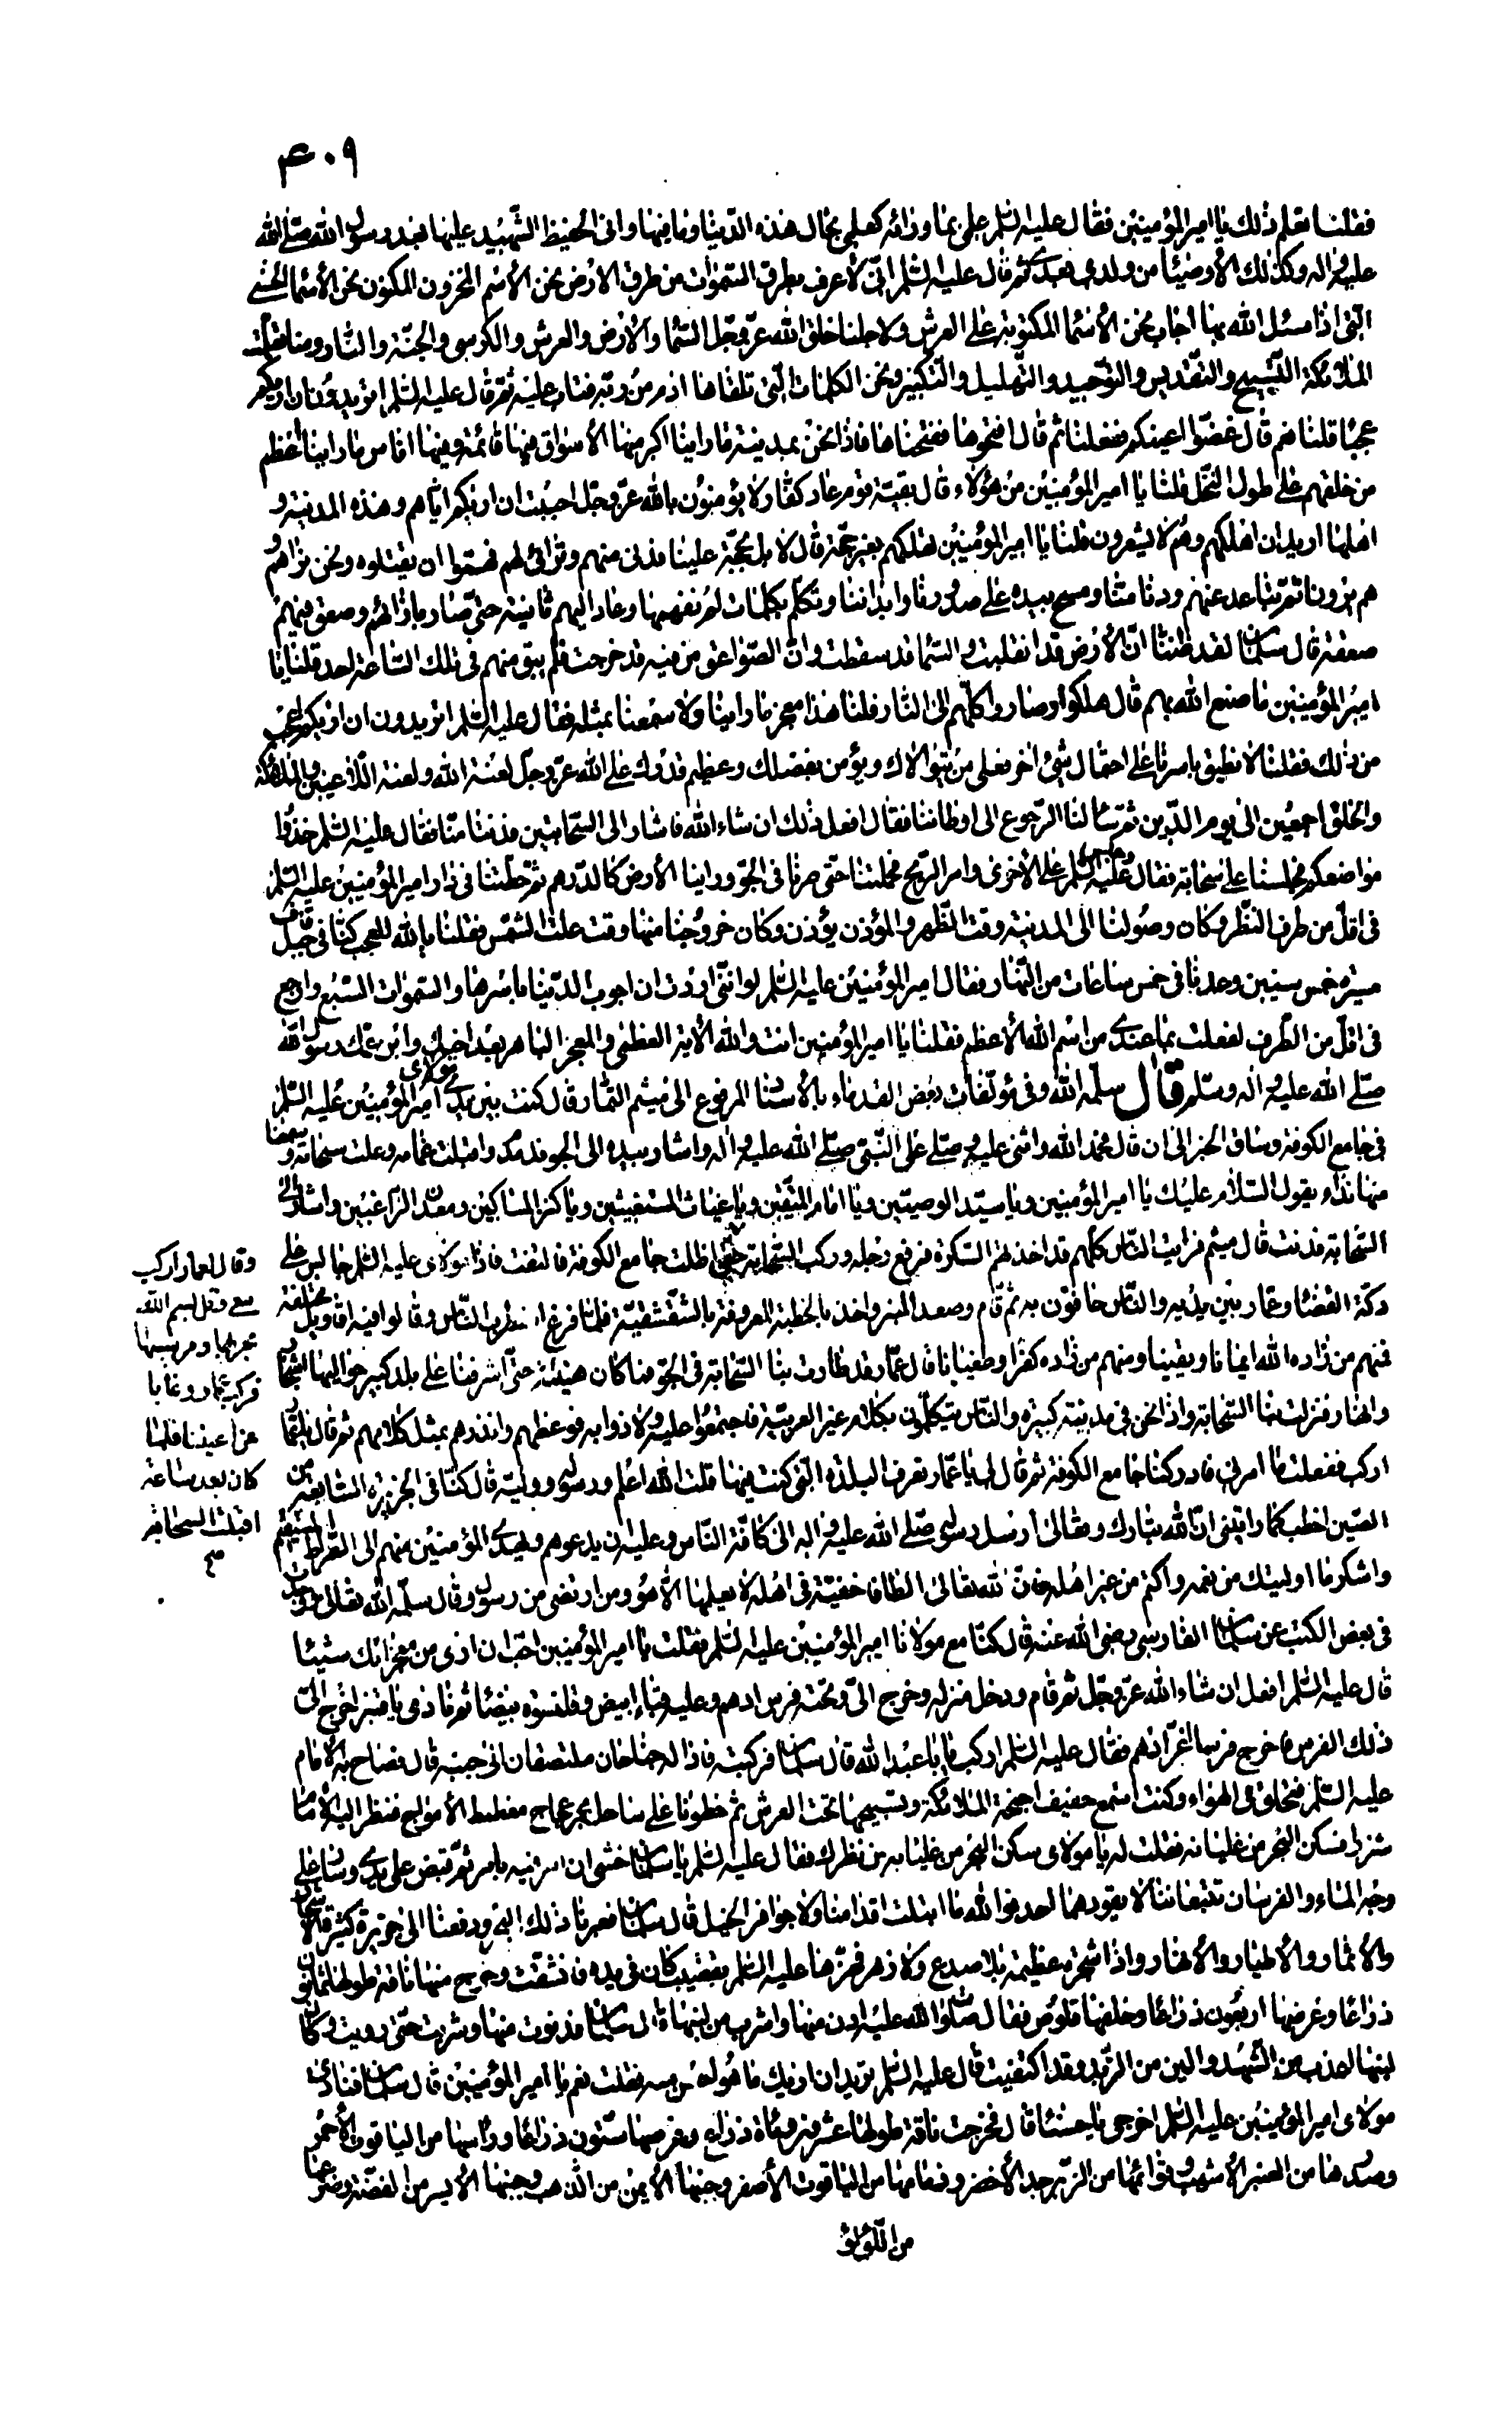 ٤٠٩
فقلنا تعلم ذلك يا امير المؤمنين فقال عليه السلم علمى بما ورائه كعلمى بحال هذه الدنيا وما فيها وانى الحفيظ الشهيد عليها بعد رسول الله صلى الله
عليه واله وكذلك الأوصيآء من ولدى بعدى ثم قال عليه السلم انى لأعرف بطرق السموات من طرق الارض نحن الأسم المخزون المكنون نحن الأسمآء الحسنى
التى اذا سئل الله بها اجاب نحن الأسمآء المكتوبة على العرش ولاجلنا خلق الله عز وجل السمآء والأرض والعرش والكرسى والجنة والنار ومنا تعلمت
الملائكة التسبيح والتقديس والتوحيد والتهليل والتكبير ونحن الكلمات التى تلقاها ادم من ربه فتاب عليه ثم قال عليه السلم اتريدون ان اريكم
عجبا قلنا نعم قال غضوا اعينكم ففعلنا ثم قال افتحوها ففتحناها فاذا نحن بمدينة ما راينا اكبر منها الأسواق فيها قائمة وفيها اناس ما راينا اعظم
من خلقهم على طول النخل قلنا يا امير المؤمنين من هؤلاء قال بقية قوم عاد كفار لا يؤمنون بالله عز وجل احببت ان اريكم اياهم وهذه المدينة و
اهلها اريد ان اهلكهم وهم لا يشعرون قلنا يا امير المؤمنين تهلكهم بغير حجة قال لا بل بحجة علينا فدنى منهم وترائى لهم فهموا ان يقتلوه ونحن نراهم و
هم يرونا ثم تباعد عنهم ودنا منا ومسح بيده على صدورنا وابداننا وتكلم بكلمات لم نفهمها وعاد اليهم ثانية حتى صار بازائهم وصعق فيهم
صعقة قال سلمان لقد ظننا ان الأرض قد انقلبت والسمآء قد سقطت وان الصواعق من فيه قد خرجت فلم يبق منهم فى تلك الساعة احد قلنا يا
امير المؤمنين ما صنع الله بهم قال هلكوا وصاروا كلهم الى النار قلنا هذا معجز ما راينا ولا سمعنا بمثله فقال عليه السلم اتريدون ان اريكم اعجب
من ذلك فقلنا لا نطيق باسرنا على احتمال شىء اخر فعلى من لا يتوالاك ويؤمن بفضلك وعظيم قدرك على الله عز وجل لعنة الله ولعنة اللاعبين والملائكة
والخلق اجمعين الى يوم الدين ثم سألنا الرجوع الى اوطاننا فقال افعل ذلك ان شاء الله فاشار الى السحابتين فدنتا منا فقال عليه السلم خذوا
مواضعكم فجلسنا على سحابة وجلس عليه السلم على الأخرى وامر الريح فحملتنا حتى صرنا فى الجو وراينا الأرض كالدرهم ثم حطتنا فى دار امير المؤمنين عليه السلم
فى اقل من طرف النظر وكان وصولنا الى المدينة وقت الظهر والمؤذن يؤذن وكان خروجنا منها وقت علت الشمس فقلنا بالله للعجب كنا فى جبل قاف
مسيرة خمس سنين وعدنا فى خمس ساعات من النهار فقال امير المؤمنين عليه السلم لو اننى اردت ان اجوب الدنيا باسرها والسموات السبع وارجع
فى اقل من الطرف لفعلت بما عندى من اسم الله الأعظم فقلنا يا امير المؤمنين انت والله الأية العظمى والمعجز الباهر بعد اخيك وابن عمك رسول الله
صلى الله عليه واله وسلم قال سلمه الله وفى مؤلفات بعض القدماء بالأسناد المرفوع الى ميثم التمار قال كنت بين يدى مولاى امير المؤمنين عليه السلم
فى جامع الكوفة وساق الخبر الى ان قال فحمد الله واثنى عليه وصلى على النبى صلى الله عليه واله واشار بيده الى الجو فدمدم واقبلت غمامه وعلت سحابة وسمعنا
منها نداء يقول السلام عليك يا امير المؤمنين ويا سيد الوصيين ويا امام المتقين ويا غياث المستغيثين ويا كنز المساكين ومعدن الراغبين واشار الى
السحابة فدنت قال ميثم فرايت الناس كلهم قد اخذتهم السكرة فرفع رجله وركب السحابة حتى اظلت جامع الكوفة فالتفت فاذا مولاى عليه السلم جالس على
دكة القضآء وعمار بين يديه والناس حافون به ثم قام وصعد المنبر واخذ بالخطبة المعروفة بالشقشقية فلما فرغ اضطرب الناس وقالوا فيه اقاويل مختلفة
فمنهم من زاده الله ايمانا ويقينا ومنهم من زاده كفرا وطغيانا قال عمار قد طارت بنا السحابة فى الجو فما كان هنيئة حتى اشرفنا على بلد كبير حواليها اشجار
وانهار فنزلت بنا السحابة واذا نحن فى مدينة كبيرة والناس يتكلمون بكلام غير العربية فاجتمعوا عليه ولاذوا به فوعظهم وانذرهم بمثل كلامهم ثم قال يا عمار
اركب ففعلت ما امرنى فادركنا جامع الكوفة ثم قال لى يا عمار تعرف البلدة التى كنت فيها قلت الله اعلم ورسوله ووليه قال كنا فى الجزيرة السابعة من
الصين اخطب كما رايتنى ان الله تبارك وتعالى ارسل رسوله صلى الله عليه واله الى كافة الناس وعليه ان يدعوهم ويهدى المؤمنين منهم الى الصراط المستقيم
واشكر ما اوليتك من نعمه واكتم من غير اهله فان لله تعالى الطافا خفية فى اهله لا يعلمها الا هو ومن ارتضى من رسول وقال سلمه الله تعالى
فى بعض الكتب عن سلمان الفارسى رضى الله عنه قال كنا مع مولانا امير المؤمنين عليه السلم فقلت يا امير المؤمنين احب ان ارى من معجزاتك شيئا
قال عليه السلم افعل ان شاء الله عز وجل ثم قام ودخل منزله وخرج الى وتحته فرس ادهم وعليه قباء ابيض وقلنسوه بيضآء ثم نادى يا قنبر اخرج الى
ذلك الفرس فاخرج فرسا اغر ادهم فقال عليه السلم اركب يا با عبد الله قال سلمان فركبته فاذا له جناحان ملتصقان الى جنبه قال فصاح به الامام
عليه السلم فتحلق فى الهواء وكنت اسمع حفيف اجنحة الملائكة وتسبيحها تحت العرش ثم خطونا على ساحل بحر عجاج مغطمط الأمواج فنظر اليه الأمام
شزرا فسكن البحر من غليانه فقلت له يا مولاى سكن البحر من غليانه من نظرك فقال عليه السلم يا سلمان خشى ان امر فيه بامر ثم قبض على يدى وسار على
وجه الماء والفرسان تتبعاننا لا يقودهما احد فوالله ما ابتلت اقدامنا ولا حوافر الخيل قال سلمان فعبرنا ذلك البحر ودفعنا الى جزيرة كثيرة الاشجار
والأثمار والأطيار والأنهار واذا شجرة عظيمة بلا صدع ولا زهر فهزها عليه السلم بقضيب كان فى يده فانشقت وخرج منها ناقة طولها ثمانون
ذراعا وعرضها اربعون ذراعا وخلفها قلوص فقال صلوات الله عليه ادن منها واشرب من لبنها قال سلمان فدنوت منها وشربت حتى رويت وكان
لبنها اعذب من الشهد والين من الزبد وقد اكتفيت قال عليه السلم تريد ان اريك ما هو احسن منه فقلت نعم يا امير المؤمنين قال سلمان فنادى
مولاى امير المؤمنين عليه السلم اخرجى يا حسنآء قال فخرجت ناقة طولها عشرون ومأة ذراع وعرضها ستون ذراعا وراسها من الياقوت الأحمر
وصدرها من العنبر الأشهب وقوائمها من الزبرجد الأخضر وزمامها من الياقوت الأصفر وجنبها الأيمن من الذهب وجنبها الأيسر من الفضة وضرعها
من اللؤلؤ
وقال لعمار اركب
معى وقل بسم الله
مجريها ومرسيها
فركب عمار وغابا
عن اعيننا فلما
كان بعد ساعة
اقبلت السحابة